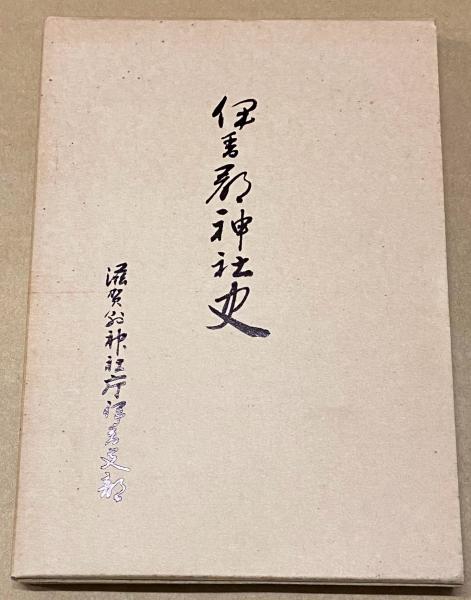 伊香郡神社史
滋賀県神社庁伊香支部